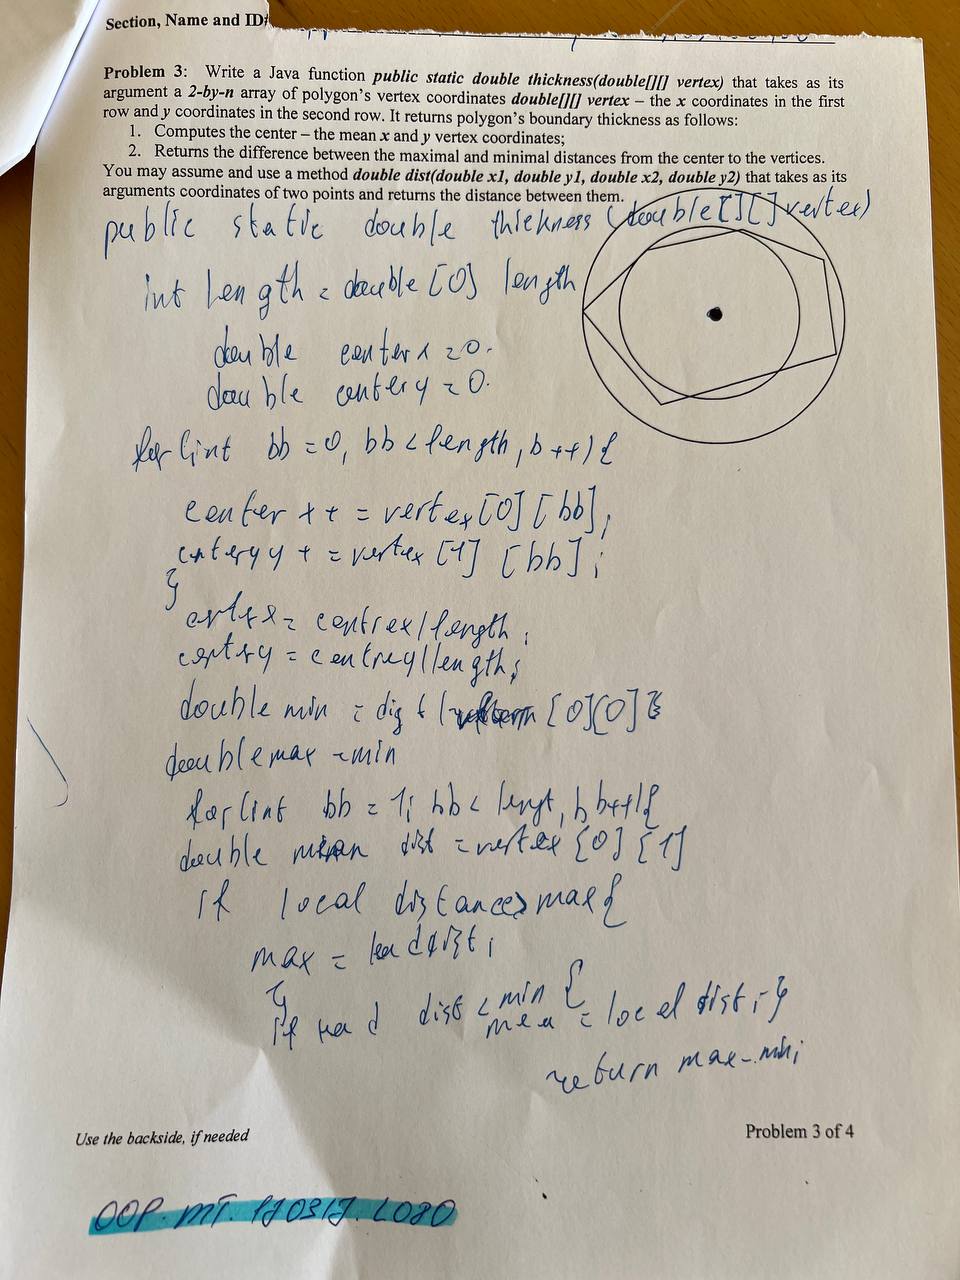 Section, Name and ID#
Problem 3: Write a Java function public static double thickness(double[][] vertex) that takes as its
argument a 2-by-n array of polygon's vertex coordinates double[][] vertex – the x coordinates in the first
row and y coordinates in the second row. It returns polygon's boundary thickness as follows:
1. Computes the center – the mean x and y vertex coordinates;
2. Returns the difference between the maximal and minimal distances from the center to the vertices.
You may assume and use a method double dist(double x1, double y1, double x2, double y2) that takes as its
arguments coordinates of two points and returns the distance between them.
public static double thickness (double[][] vertex)
int length = double [0] length
double centerx = 0.
double centery = 0.
for (int bb = 0, bb < length, b++) {
center x + = vertex [0] [bb];
y + = vertex [1] [bb];
}
= centrex / length;
= centrey / length;
double min = [0][0]
double max = min
for (int bb = 1; bb < lengt, b b++) {
double dist = vertex [0] [1]
if local distance > max {
max = ;
}
if dist < min { = local dist; }
return max - min;
Use the backside, if needed
Problem 3 of 4
OOP. MT. 170317. L080